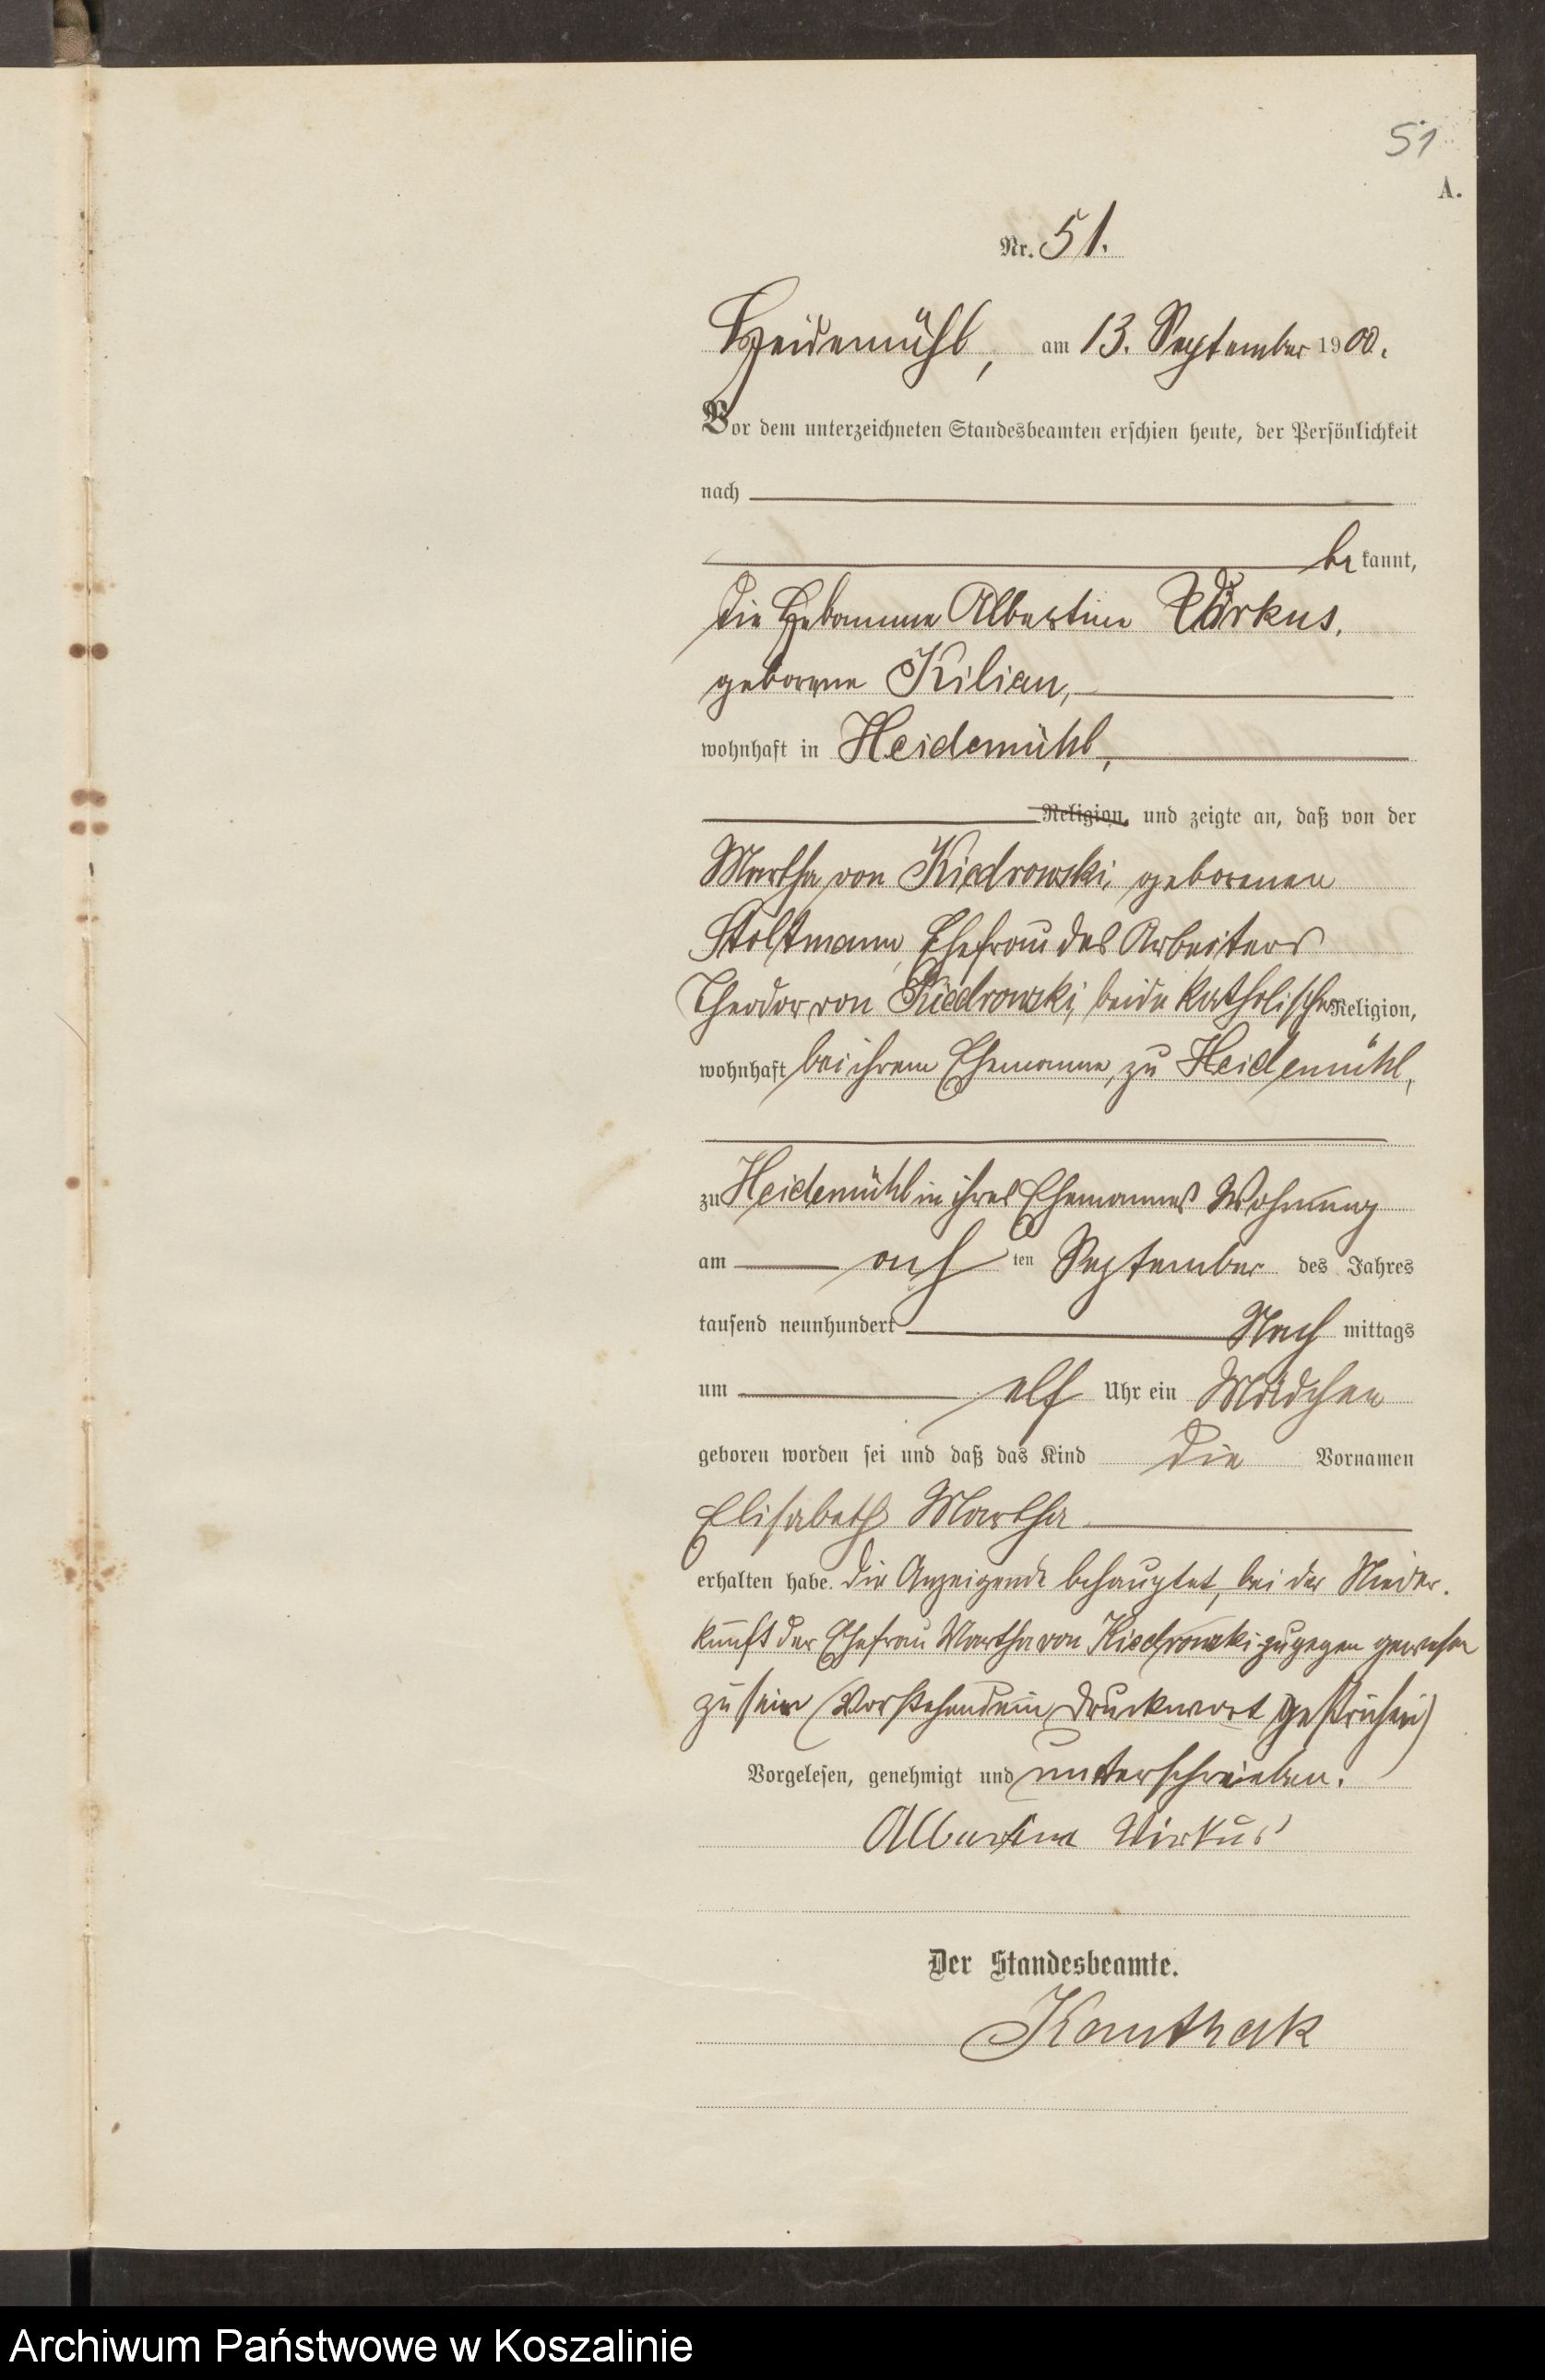 51
A.
Nr. 51.
Heidemühl, am 13. September 1900.
Vor dem unterzeichneten Standesbeamten erschien heute, der Persönlichkeit
nach
bekannt,
die Hebamme Albertine Wirkus,
geborene Kilian,
wohnhaft in Heidemühl,
Religion, und zeigte an, daß von der
Martha von Kiedrowski, geborenen
Stoltmann, Ehefrau des Arbeiters
Theodor von Kiedrowski, beide katholischer Religion,
wohnhaft bei ihrem Ehemanne, zu Heidemühl,
zu Heidemühl in ihres Ehemannes Wohnung
am acht ten September des Jahres
tausend neunhundert Nach mittags
um elf Uhr ein Mädchen
geboren worden sei und daß das Kind die Vornamen
Elisabeth Martha
erhalten habe. Die Anzeigende behauptet, bei der Nieder-
kunft der Ehefrau Martha von Kiedrowski zugegen gewesen
zu sein (Vorstehend ein Druckwort gestrichen)
Vorgelesen, genehmigt und unterschrieben.
Albertine Wirkus
Der Standesbeamte.
Kanthak
Archiwum Państwowe w Koszalinie